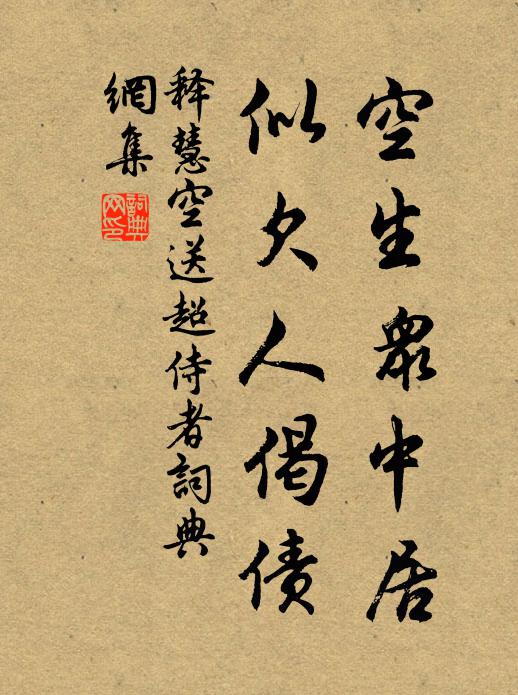 空生眾中居
似欠人偈债
释慧空送超侍者詞典
網集
詞典网印